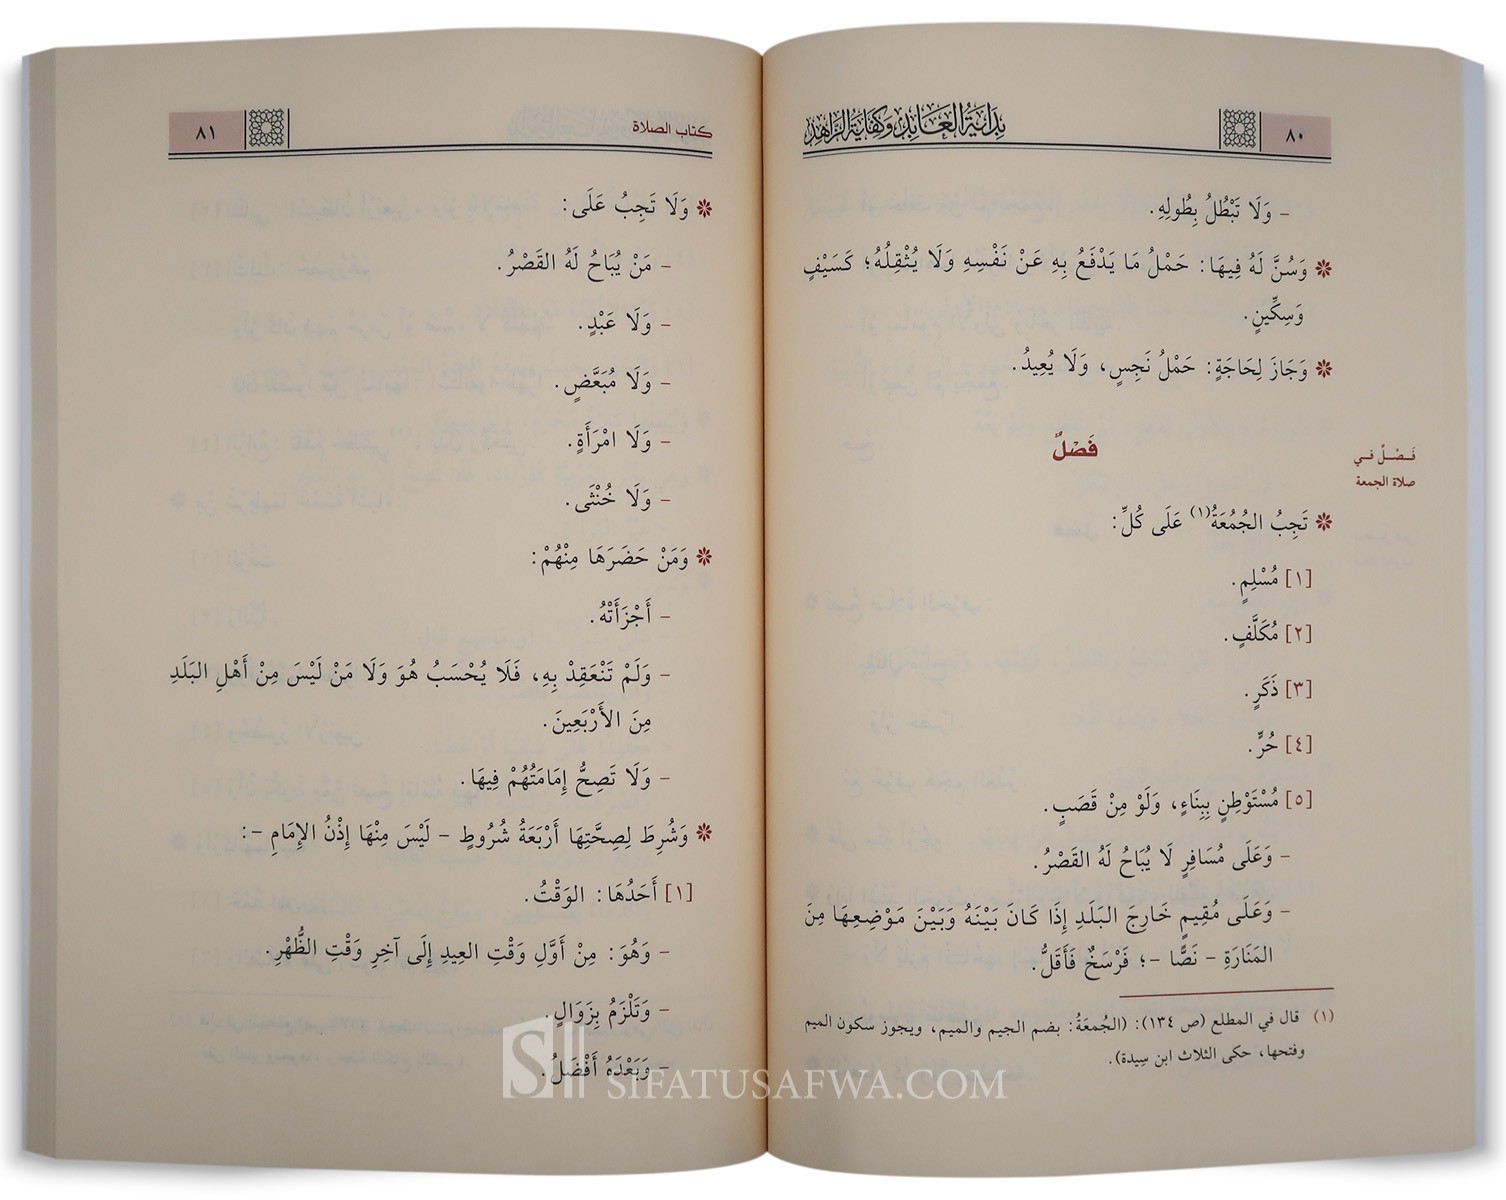 ٨٠
بداية العابد وكفاية الزاهد
- وَلَا تَبْطُلُ بِطُولِهِ.
وَسُنَّ لَهُ فِيهَا: حَمْلُ مَا يَدْفَعُ بِهِ عَنْ نَفْسِهِ وَلَا يُثْقِلُهُ؛ كَسَيْفٍ
وَسِكِّينٍ.
وَجَازَ لِحَاجَةٍ: حَمْلُ نَجِسٍ، وَلَا يُعِيدُ.
فَصْلٌ
فَصْلٌ في
صلاة الجمعة
تَجِبُ الجُمُعَةُ(١) عَلَى كُلِّ:
[١] مُسْلِمٍ.
[٢] مُكَلَّفٍ.
[٣] ذَكَرٍ.
[٤] حُرٍّ.
[٥] مُسْتَوْطِنٍ بِبِنَاءٍ، وَلَوْ مِنْ قَصَبٍ.
- وَعَلَى مُسَافِرٍ لَا يُبَاحُ لَهُ القَصْرُ.
- وَعَلَى مُقِيمٍ خَارِجَ البَلَدِ إِذَا كَانَ بَيْنَهُ وَبَيْنَ مَوْضِعِهَا مِنَ
المَنَارَةِ - نَصًّا -؛ فَرْسَخٌ فَأَقَلُّ.
(١) قال في المطلع (ص ١٣٤): (الجُمعَةُ: بضم الجيم والميم، ويجوز سكون الميم
وفتحها، حكى الثلاث ابن سِيدة).
كتاب الصلاة
٨١
وَلَا تَجِبُ عَلَى:
- مَنْ يُبَاحُ لَهُ القَصْرُ.
- وَلَا عَبْدٍ.
- وَلَا مُبَعَّضٍ.
- وَلَا امْرَأَةٍ.
- وَلَا خُنْثَى.
وَمَنْ حَضَرَهَا مِنْهُمْ:
- أَجْزَأَتْهُ.
- وَلَمْ تَنْعَقِدْ بِهِ، فَلَا يُحْسَبُ هُوَ وَلَا مَنْ لَيْسَ مِنْ أَهْلِ البَلَدِ
مِنَ الأَرْبَعِينَ.
- وَلَا تَصِحُّ إِمَامَتُهُمْ فِيهَا.
وَشُرِطَ لِصِحَّتِهَا أَرْبَعَةُ شُرُوطٍ - لَيْسَ مِنْهَا إِذْنُ الإِمَامِ -:
[١] أَحَدُهَا: الوَقْتُ.
- وَهُوَ: مِنْ أَوَّلِ وَقْتِ العِيدِ إِلَى آخِرِ وَقْتِ الظُّهْرِ.
- وَتَلْزَمُ بِزَوَالٍ.
- وَبَعْدَهُ أَفْضَلُ.
SIFATUSAFWA.COM